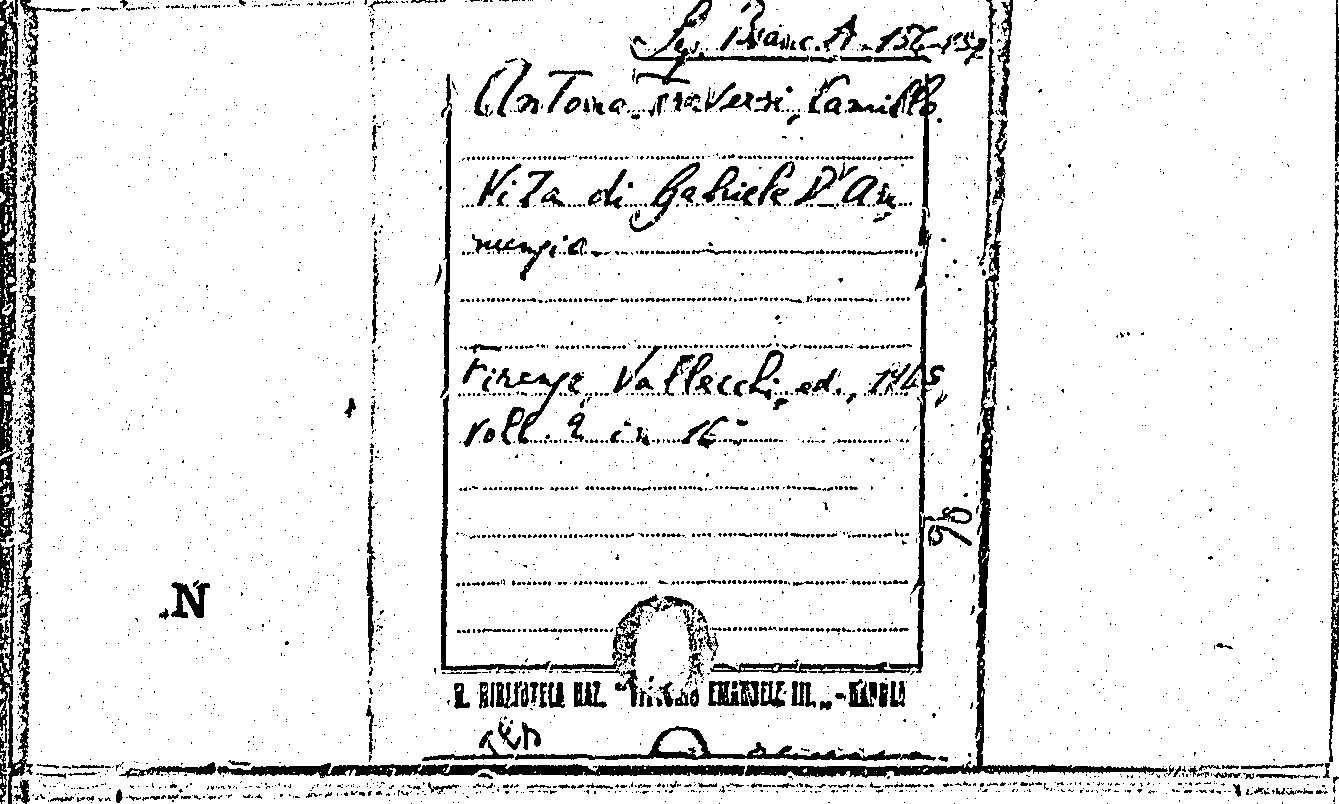 Branc. A. 156-157
Antona-Traversi, Camillo.
Vita di Gabriele D'An-
nunzio.
Firenze, Vallecchi, ed., 1945,
voll. 2 in 16°
90.
N
R. BIBLIOTECA NAZ. "VITTORIO EMANUELE III" - NAPOLI